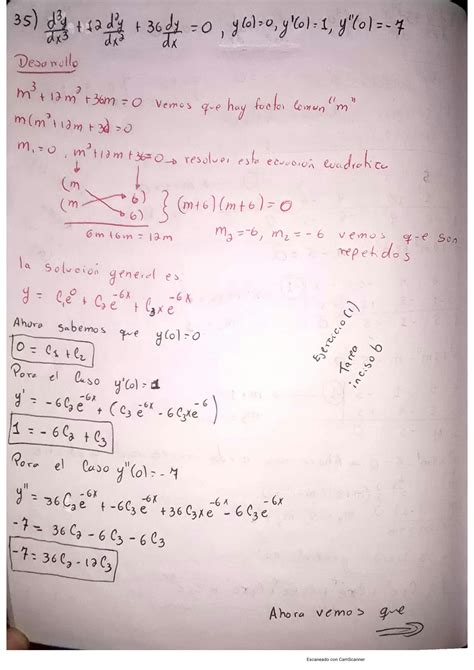 35) d³y/dx³ + 12 d²y/dx² + 36 dy/dx = 0 , y(0)=0, y'(0)=1, y''(0)=-7
Desarrollo
m³ + 12m² + 36m = 0 vemos que hay factor comun "m"
m(m² + 12m + 36) = 0
m₁ = 0 , m² + 12m + 36 = 0 → resolver esta ecuación cuadratica
(m 6)
(m 6) } (m+6)(m+6) = 0
6m+6m = 12m m₂ = -6, m₂ = -6 vemos que son
repetidos
la solución general es:
y = C₁e⁰ + C₂e^-6x + C₃xe^-6x
Ahora sabemos que y(0)=0
0 = C₁ + C₂
Para el Caso y'(0)=1
y' = -6C₂e^-6x + (C₃e^-6x - 6C₃xe^-6)
1 = -6C₂ + C₃
Para el Caso y''(0) = -7
y'' = 36C₂e^-6x + -6C₃e^-6x + 36C₃xe^-6x - 6C₃e^-6x
-7 = 36C₂ - 6C₃ - 6C₃
-7 = 36C₂ - 12C₃
Ejercicio (1)
Tarea
inciso b
Ahora vemos que
Escaneado con CamScanner